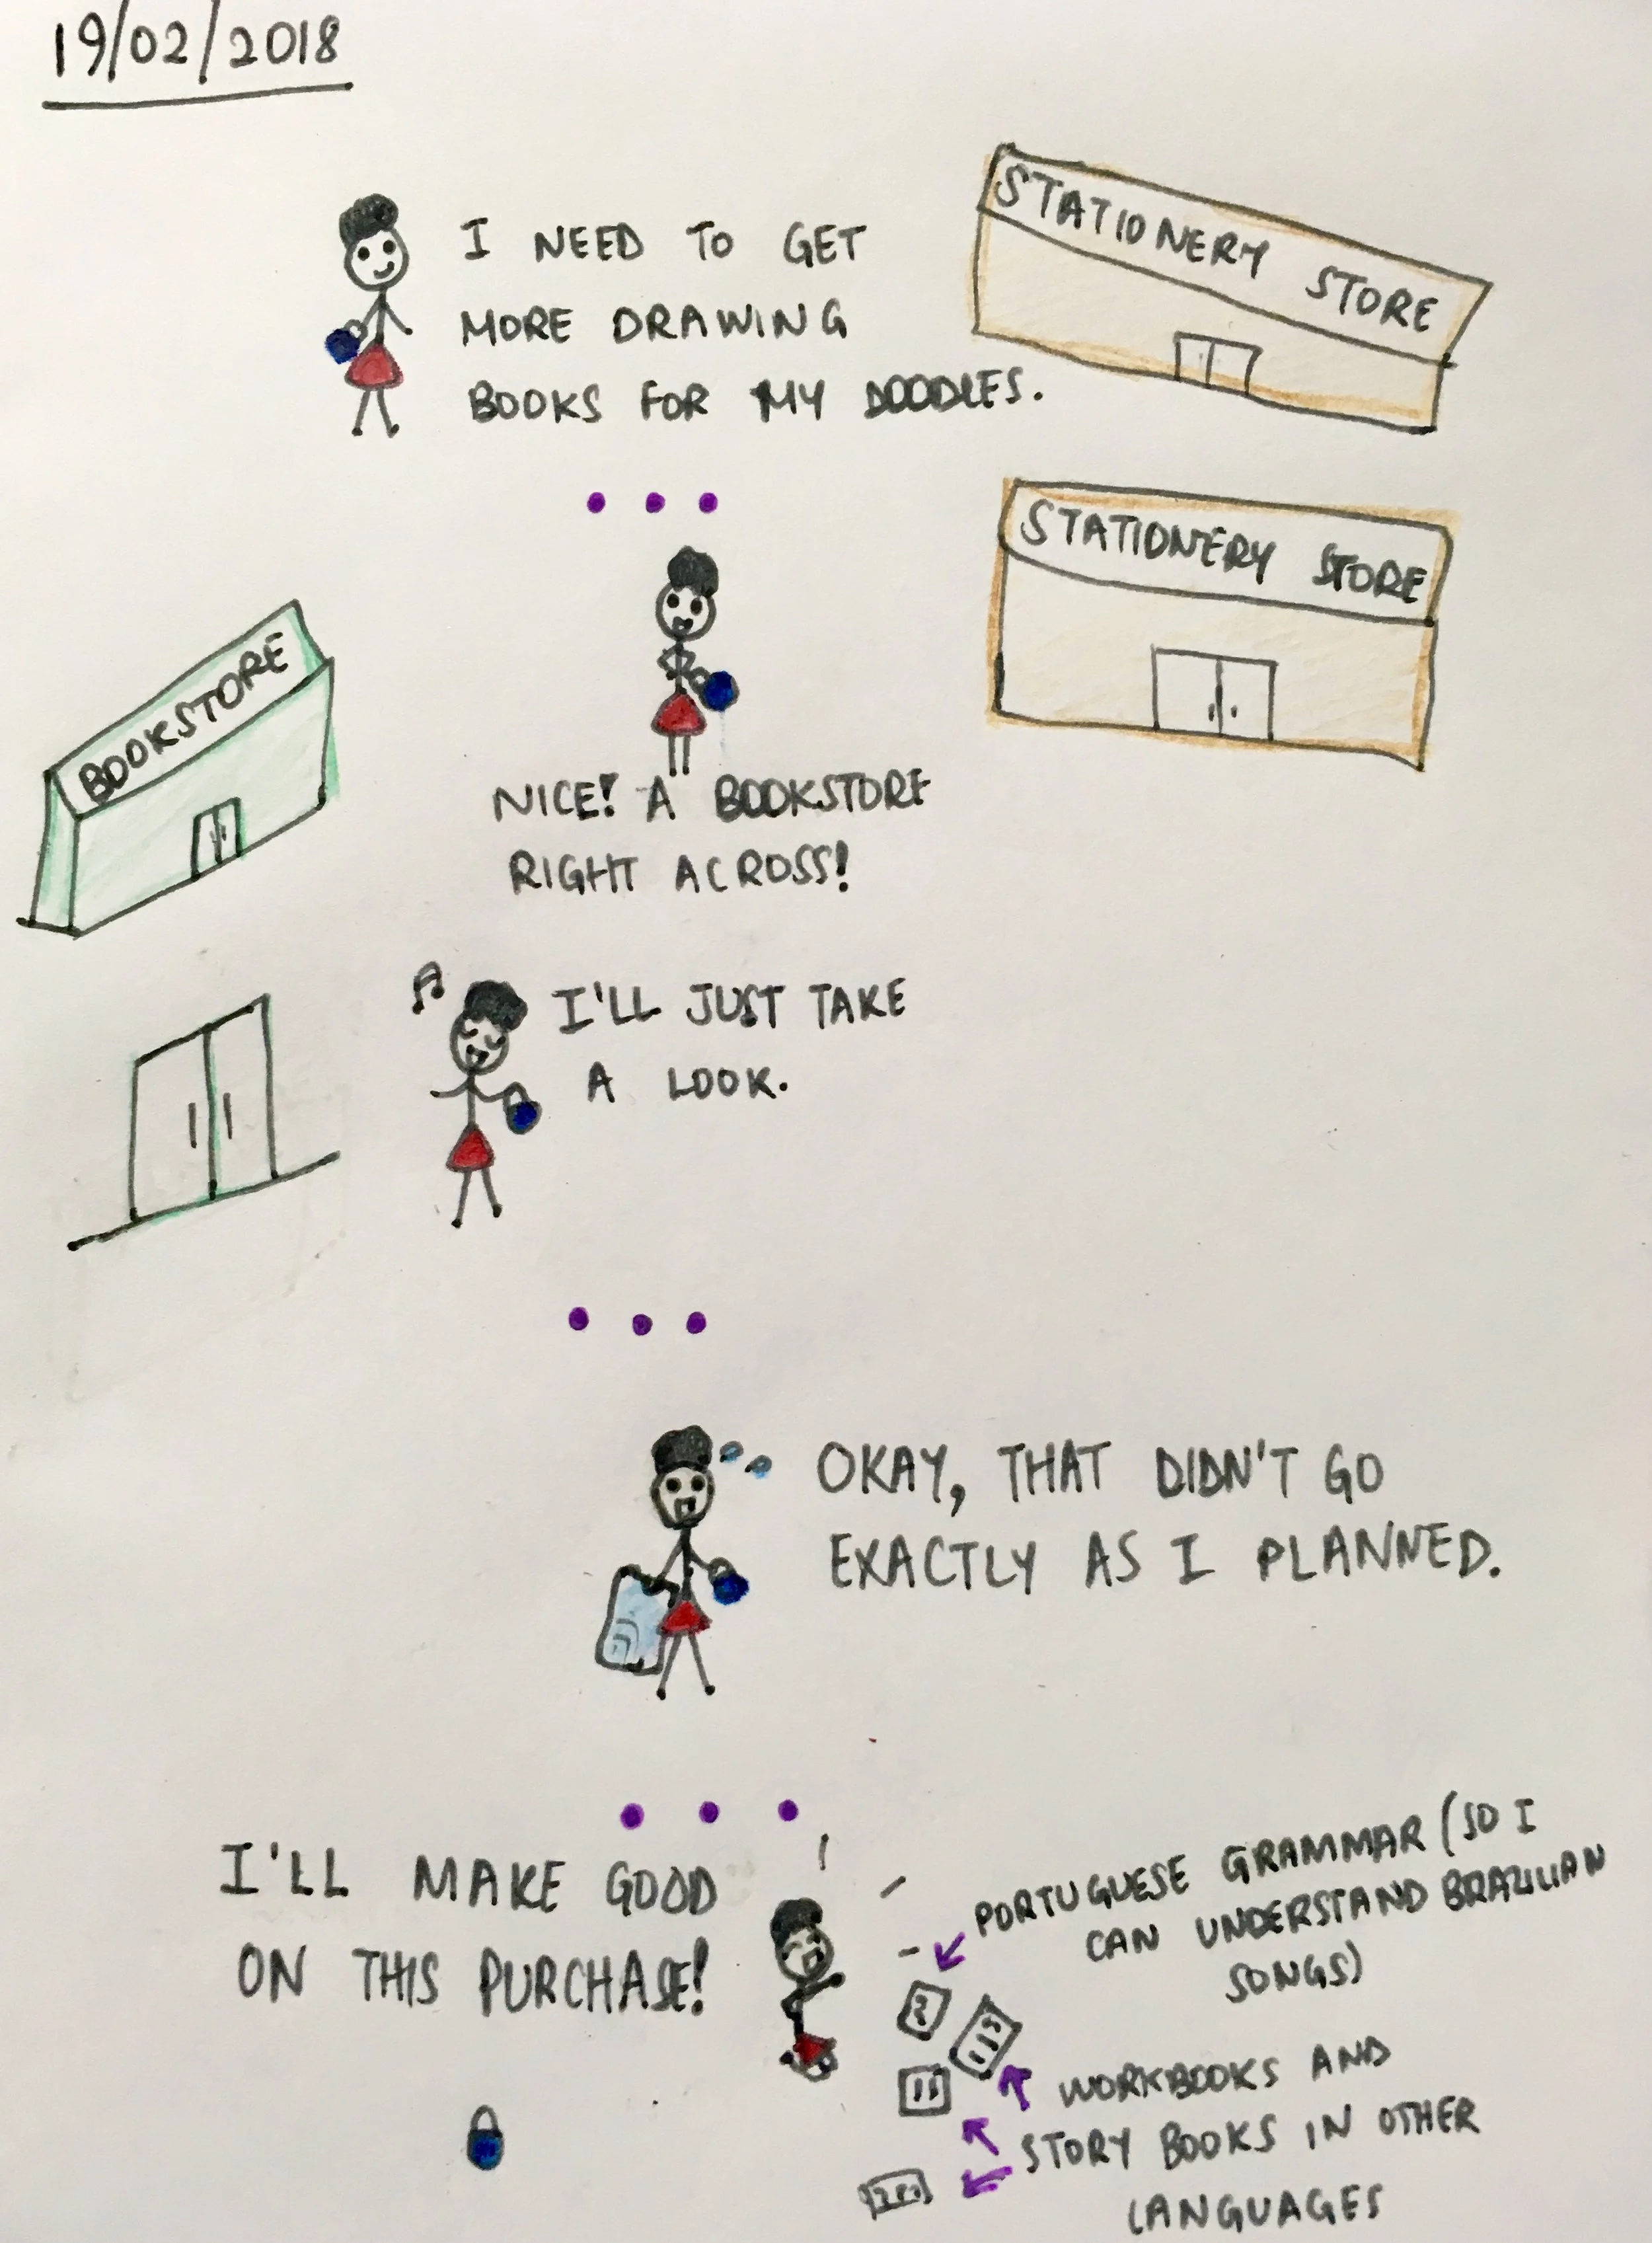 19/02/2018
I NEED TO GET
MORE DRAWING
BOOKS FOR MY DOODLES.
STATIONERY STORE
STATIONERY STORE
BOOKSTORE
NICE! A BOOKSTORE
RIGHT ACROSS!
I'LL JUST TAKE
A LOOK.
OKAY, THAT DIDN'T GO
EXACTLY AS I PLANNED.
I'LL MAKE GOOD
ON THIS PURCHASE!
PORTUGUESE GRAMMAR (SO I
CAN UNDERSTAND BRAZILIAN
SONGS)
WORKBOOKS AND
STORY BOOKS IN OTHER
LANGUAGES